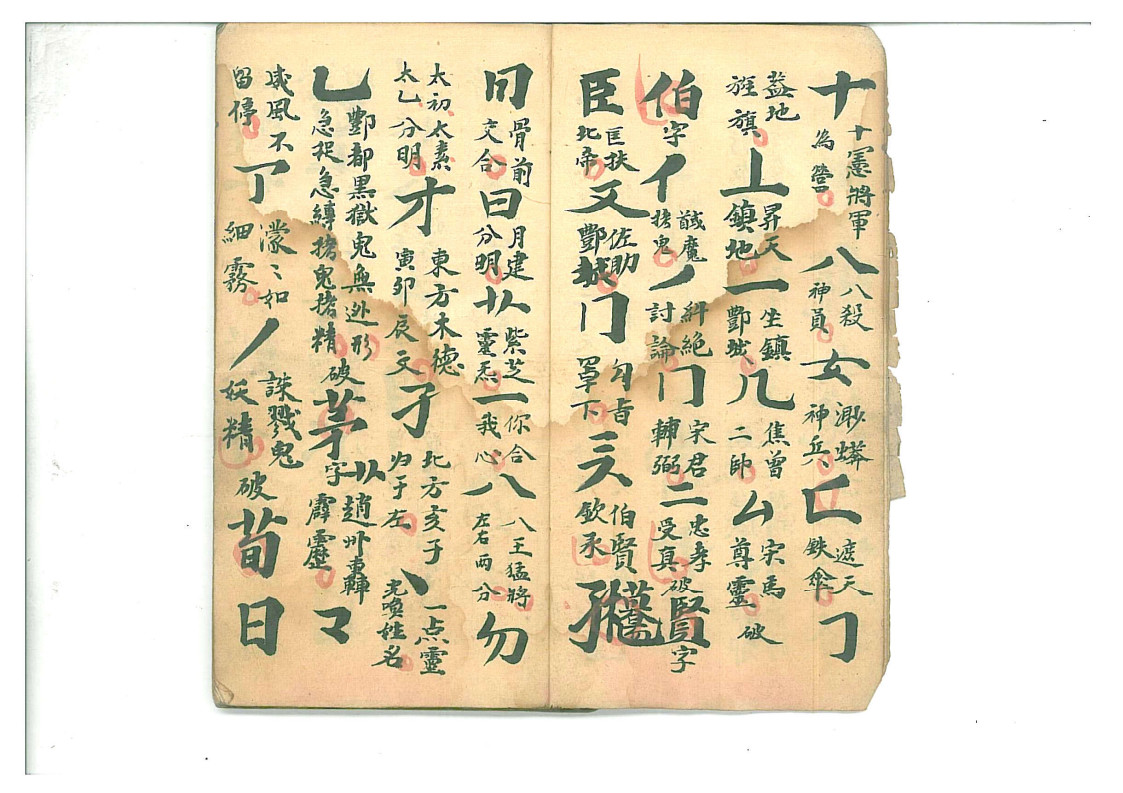 十 十憲將軍為營 八 八殺神員 女 渺蟒神兵 匚 遮天鉄傘 ㇆
蓋地旌旗 丄 昇天鎮地 一 坐鎮酆城 几 焦曾二帥 厶 宋馬尊靈 破
伯字 亻 馘魔擒鬼 丿 糾絕討論 冂 宋君輔弼 二 忠孝受真 破賢字
臣 匡扶北帝 又 佐助酆城 冂 勾旨罩下 三又 伯賢欽承
冃 骨前交合 曰 月建分明 㠯 紫芝靈炁 一 你合我心 八 八王猛將左右兩分 勿
太初太素太乙分明 才 東方木德寅卯辰文 子 北方亥子归于左 丶 一点靈光喚姓名
乚 酆都黑獄鬼無迯形急捉急縛擒鬼擒精 破茅字 趙州霹靂 龴
威風不留停 丁 濛〻如細霧 丿 誅戮鬼妖精 破荀 日